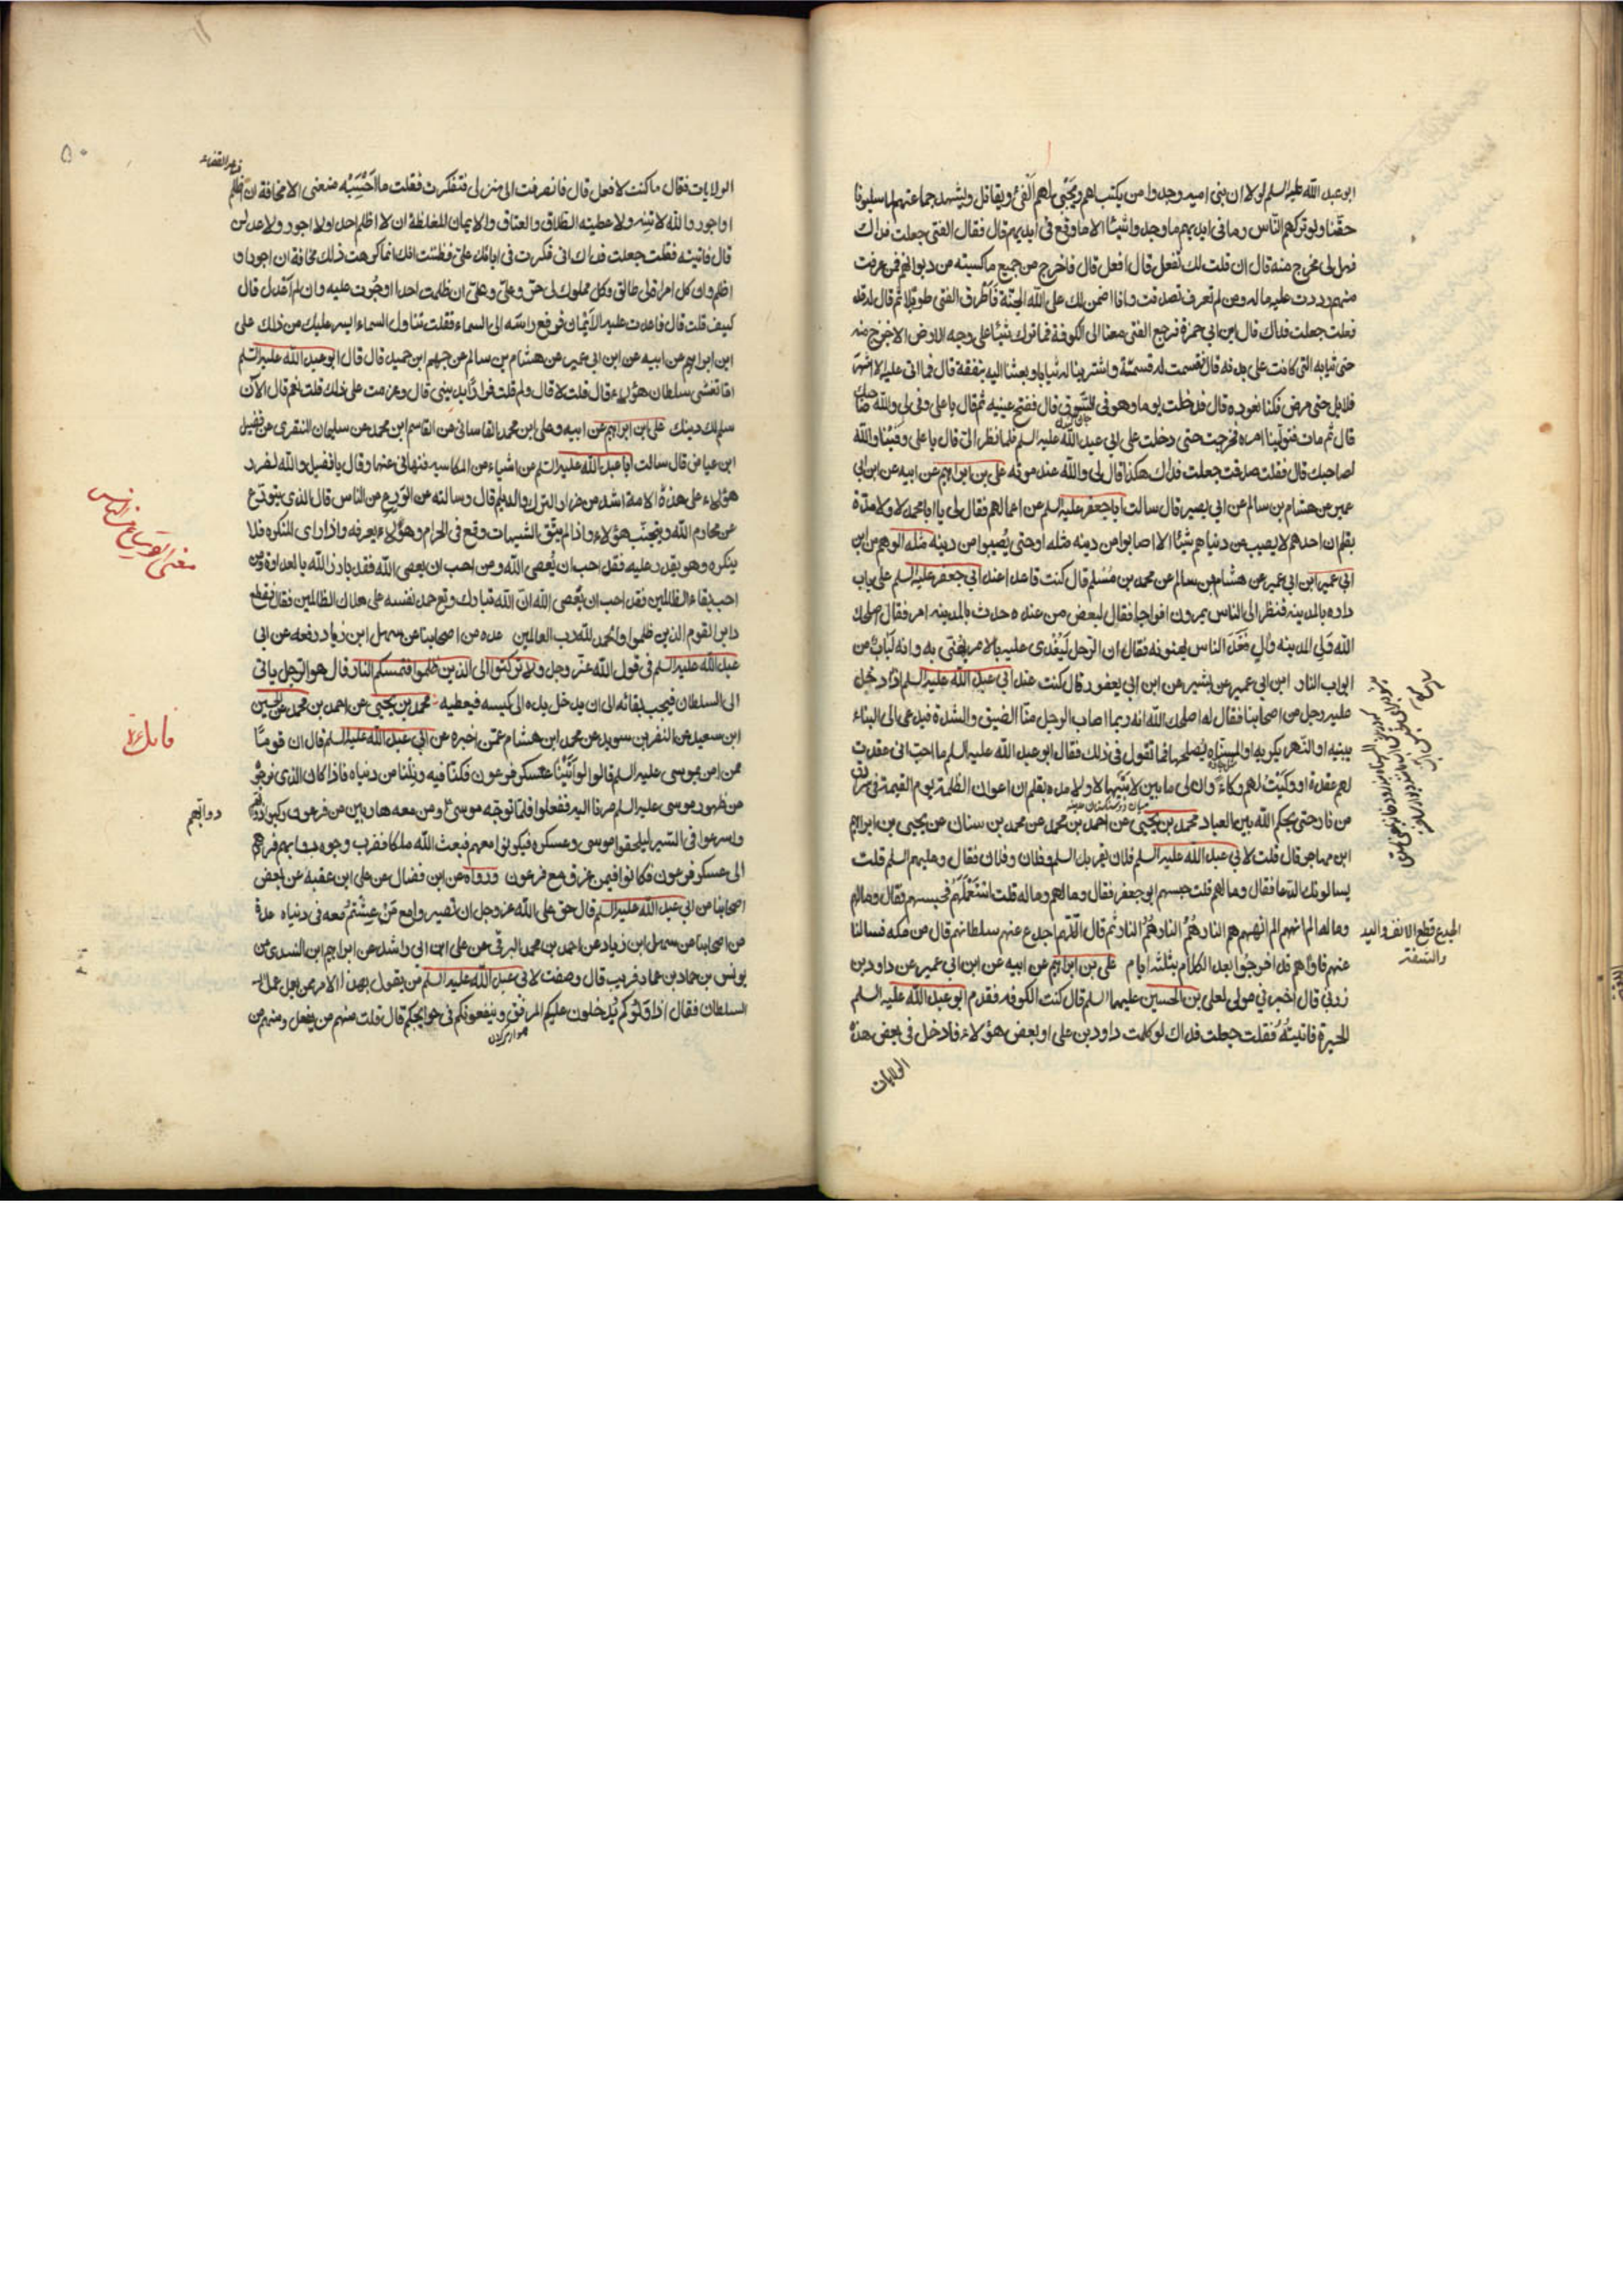 ابو عبد الله عليه السلم لولا ان بنى اميه وجدوا من يكتب لهم ويجبى لهم الفئ ويقاتل ويشهد جماعتهم لما سلبونا
حقنا ولو تركهم الناس وما فى ايديهم ما وجدوا شيئا الا ما وقع فى ايديهم قال فقال الفتى جعلت فداك
فهل لى مخرج منه قال ان قلت لك تفعل قال افعل قال فاخرج من جميع ما كسبته من ديوانهم فمن عرفت
منهم رددت عليه ماله ومن لم تعرف تصدقت وانا اضمن لك على الله الجنة فاطرق الفتى طويلا ثم قال له قد
فعلت جعلت فداك قال ابن ابي حمزة فرجع الفتى معنا الى الكوفة فما ترك شيئا على وجه الارض الا خرج منه
حتى ثيابه التى كانت على بدنه قال فقسمت له قسمة واشترينا له ثيابا وبعثنا اليه بنفقة قال فما اتى عليه الا اشهر
قلايل حتى مرض فكنا نعوده قال فدخلت يوما وهو فى السوق قال ففتح عينيه ثم قال يا على وفى لى والله صاحبك
قال ثم مات فتولينا امره فخرجت حتى دخلت على ابى عبد الله عليه السلم فلما نظر الى قال يا على وفينا والله
لصاحبك قال فقلت صدقت جعلت فداك هكذا قال لى والله عند موته على بن ابراهيم عن ابيه عن ابن ابى
عمير عن هشام بن سالم عن ابي بصير قال سالت ابا جعفر عليه السلم عن اعمالهم فقال لى يا ابا محمد لا ولا مدة
بقلم ان احدهم لا يصيب من دنياهم شيئا الا اصابوا من دينه مثله او حتى يصيبوا من دينه مثله الوهم من ابن
ابي عمير ابن ابي عمير عن هشام بن سالم عن محمد بن مسلم قال كنت قاعدا عند ابي جعفر عليه السلم على باب
داره بالمدينه فنظر الى الناس يمرون افواجا فقال لبعض من عنده حدث بالمدينه امر فقال اصلحك
الله ولى المدينه وال فغدا الناس يهنونه فقال ان الرجل ليغدى عليه بالامر يهنى به وانه لباب من
ابواب النار ابن ابي عمير عن بشير عن ابن ابي يعفور قال كنت عند ابي عبد الله عليه السلم اذ دخل
عليه رجل من اصحابنا فقال له اصلحك الله انه ربما اصاب الرجل منا الضيق والشدة فيدعى الى البناء
يبنيه او النهر يكريه او المسناه يصلحها فما تقول فى ذلك فقال ابو عبد الله عليه السلم ما احب انى عقدت
لهم عقدة او وكيت لهم وكاء وان لى ما بين لابتيها لا ولا مده بقلم ان اعوان الظلمة يوم القيمة فى سرادق
من نار حتى يحكم الله بين العباد محمد بن يحيى عن احمد بن محمد عن محمد بن سنان عن يحيى بن ابراهيم
ابن مهاجر قال قلت لابي عبد الله عليه السلم فلان يقريك السلم وفلان وفلان فقال وعليهم السلم قلت
يسالونك الدعا فقال وما لهم قلت حبسهم ابو جعفر فقال وما لهم وما له قلت استعملهم فحبسهم فقال وما لهم
وما له الم انههم الم انههم هم النار هم النار هم النار ثم قال اللهم اجدع عنهم سلطانهم قال من مكه فسالنا
عنهم فاذا هم قد اخرجوا بعد الكلام بثلثة ايام على بن ابراهيم عن ابيه عن ابن ابي عمير عن داود بن
زربي قال اخبرني مولى لعلي بن الحسين عليهما السلم قال كنت الكوفه فقدم ابو عبد الله عليه السلم
الحيرة فاتيته فقلت جعلت فداك لو كلمت داود بن على او بعض هؤلاء فادخل فى بعض هذه
الولايات
الجدع قطع الانف واليد
والشفة
الولايات فقال ما كنت لافعل قال فانصرفت الى منزلى فتفكرت فقلت ما احسبه منعنى الا مخافة ان اظلم
او اجور والله لاتينه ولاعطينه الطلاق والعتاق والايمان المغلظة ان لا اظلم احدا ولا اجور ولاعدلن
قال فاتيته فقلت جعلت فداك انى فكرت فى ابائك على فظننت انك انما كرهت ذلك مخافة ان اجور او
اظلم وان كل امراة لى طالق وكل مملوك لى حر وعلى وعلى ان ظلمت احدا او جرت عليه وان لم اعدل قال
كيف قلت قال فاعدت عليه الايمان فرفع راسه الى السماء فقلت تناول السماء ايسر عليك من ذلك على
ابن ابراهيم عن ابيه عن ابن ابي عمير عن هشام بن سالم عن جهم ابن حميد قال قال ابو عبد الله عليه السلم
اما تغشى سلطان هؤلاء قال قلت لا قال ولم قلت فرارا بدينى قال وعزمت على ذلك قلت نعم قال الان
سلم لك دينك على ابن ابراهيم عن ابيه وعلى ابن محمد القاسانى عن القاسم ابن محمد عن سليمان المنقرى عن فضيل
ابن عياض قال سالت ابا عبد الله عليه السلم عن اشياء من المكاسب فنهانى عنها وقال يا فضيل والله لضرر
هؤلاء على هذه الامة اشد من ضرر الترك والديلم قال وسالته عن الورع من الناس قال الذى يتورع
عن محارم الله ويجتنب هؤلاء واذا لم يتق الشبهات وقع فى الحرام وهو لا يعرفه واذا راى المنكر فلا
ينكره وهو يقدر عليه فقد احب ان يعصى الله ومن احب ان يعصى الله فقد بارز الله بالعداوة ومن
احب بقاء الظالمين فقد احب ان يعصى الله ان الله تبارك وتع حمد نفسه على هلاك الظالمين فقال فقطع
دابر القوم الذين ظلموا والحمد لله رب العالمين عده من اصحابنا عن سهل ابن زياد رفعه عن ابى
عبد الله عليه السلم فى قول الله عز وجل ولا تركنوا الى الذين ظلموا فتمسكم النار قال هو الرجل ياتى
الى السلطان فيحب بقائه الى ان يدخل يده الى كيسه فيعطيه محمد بن يحيى عن احمد بن محمد عن الحسين
ابن سعيد عن النضر بن سويد عن محمد ابن هشام عمن اخبره عن ابي عبد الله عليه السلم قال ان قوما
ممن امن بموسى عليه السلم قالوا لو اتينا عسكر فرعون فكنا فيه ونلنا من دنياه فاذا كان الذى نرجو
من ظهور موسى عليه السلم صرنا اليه ففعلوا فلما توجه موسى ومن معه هاربين من فرعون ركبوا دوابهم
واسرعوا فى السير ليلحقوا موسى وعسكره فيكونوا معهم فبعث الله ملكا فضرب وجوه دوابهم فردهم
الى عسكر فرعون فكانوا فيمن غرق مع فرعون ورواه عن ابن فضال عن على ابن عقبه عن بعض
اصحابنا عن ابي عبد الله عليه السلم قال حق على الله عز وجل ان تصيروا مع من عشتم معه فى دنياه عدة
من اصحابنا عن سهل ابن زياد عن احمد بن محمد البرقى عن على ابن ابى راشد عن ابراهيم ابن السندى عن
يونس بن حماد بن عمار قال وصفت لابى عبد الله عليه السلم من يقول بهذا الامر ممن يعمل عمل
السلطان فقال اذا ولوكم يدخلون عليكم المرفق وينفعونكم فى حوايجكم قال قلت منهم من يفعل ومنهم من
دوابهم
۵۰